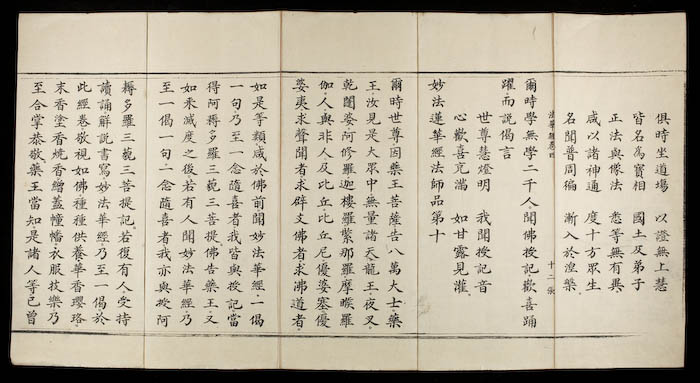 俱時坐道場　以證無上慧
皆名為寶相　國土及弟子
正法與像法　悉等無有異
咸以諸神通　度十方眾生
名聞普周徧　漸入於涅槃
法華經卷四　十二張
爾時學無學二千人聞佛授記歡喜踊
躍而說偈言
世尊慧燈明　我聞授記音
心歡喜充滿　如甘露見灌
妙法蓮華經法師品第十
爾時世尊因藥王菩薩告八萬大士藥
王汝見是大眾中無量諸天龍王夜叉
乾闥婆阿修羅迦樓羅緊那羅摩睺羅
伽人與非人及比丘比丘尼優婆塞優
婆夷求聲聞者求辟支佛者求佛道者
如是等類咸於佛前聞妙法華經一偈
一句乃至一念隨喜者我皆與授記當
得阿耨多羅三藐三菩提佛告藥王又
如來滅度之後若有人聞妙法華經乃
至一偈一句一念隨喜者我亦與授阿
耨多羅三藐三菩提記若復有人受持
讀誦解說書寫妙法華經乃至一偈於
此經卷敬視如佛種種供養華香瓔珞
末香塗香燒香繒蓋幢幡衣服技樂乃
至合掌恭敬藥王當知是諸人等已曾